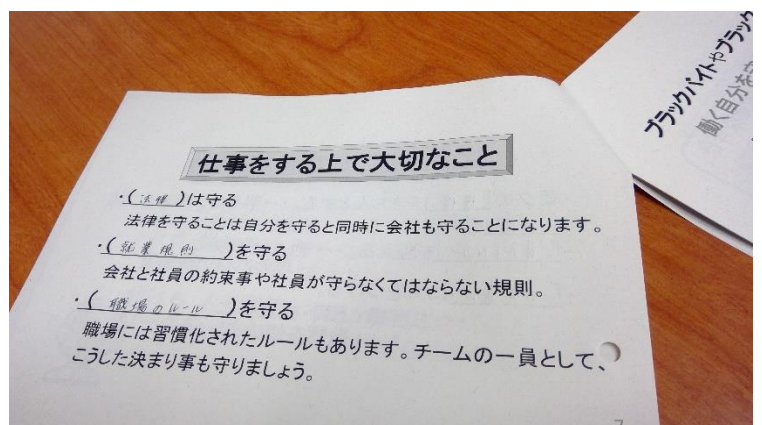 仕事をする上で大切なこと
・(法律)は守る
法律を守ることは自分を守ると同時に会社も守ることになります。
・(就業規則)を守る
会社と社員の約束事や社員が守らなくてはならない規則。
・(職場のルール)を守る
職場には習慣化されたルールもあります。チームの一員として、
こうした決まり事も守りましょう。
ブラックバイトやブラック
働く自分を守